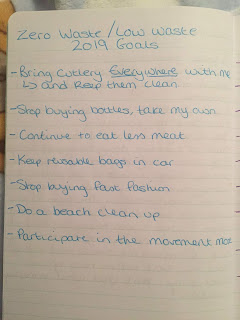 Zero Waste / Low Waste
2019 Goals
- Bring Cutlery Everywhere with me
↳ and keep them clean
- Stop buying bottles, take my own.
- Continue to eat less meat
- Keep reusable bags in car
- Stop buying fast fashion
- Do a beach clean up
- Participate in the movement more